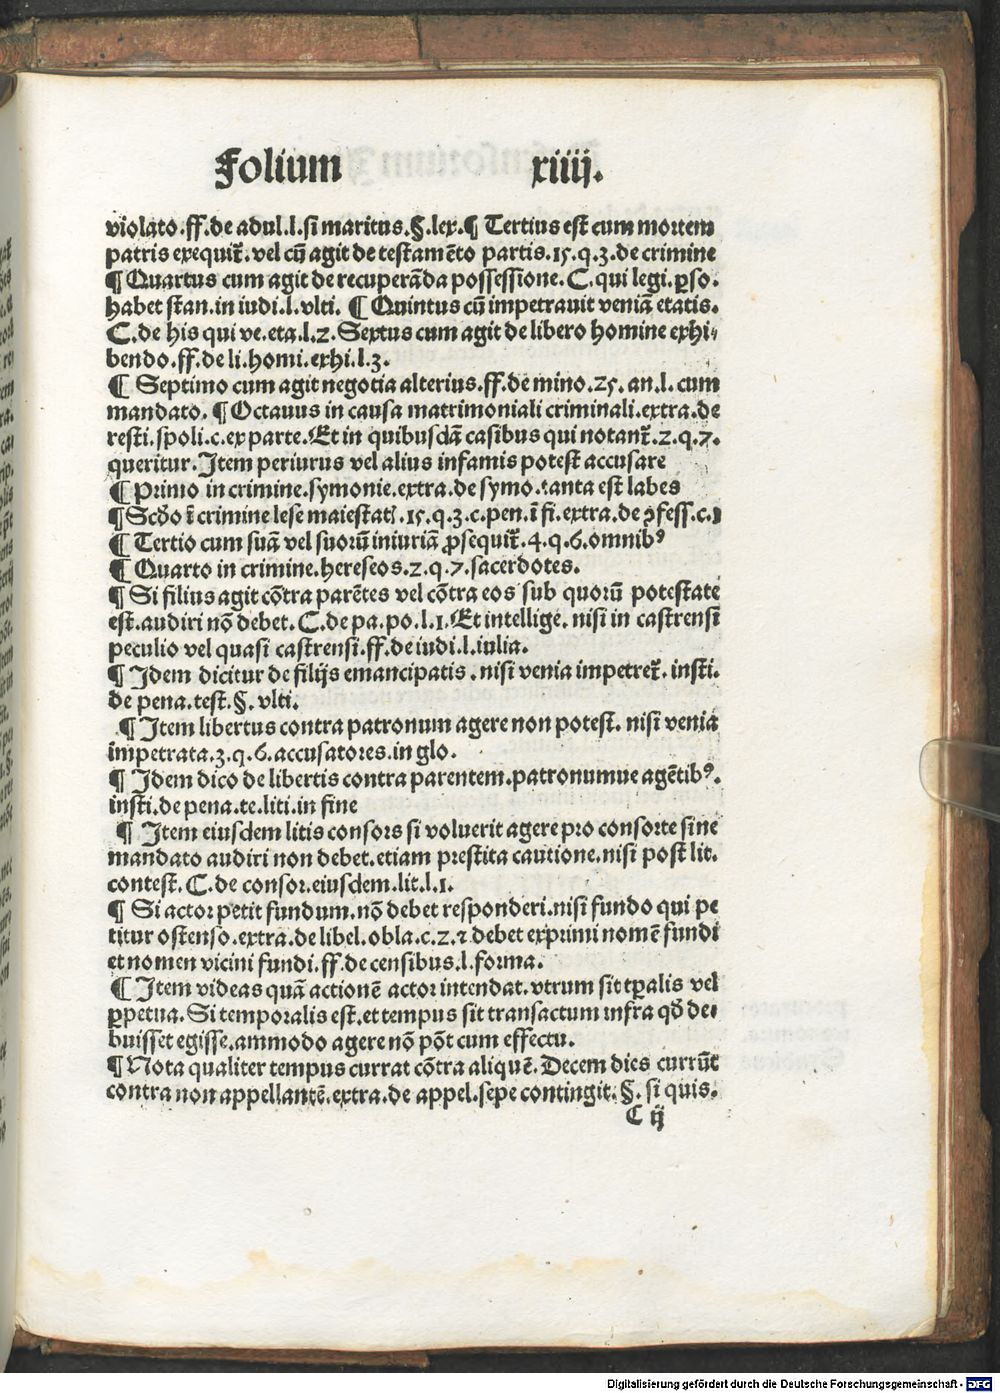 Folium xiiij.
violato.ff.de adul.l.si maritus.§.lex.¶ Tertius est cum mortem
patris exequit̄.vel cū agit de testamēto partis.15.q.3.de crimine
¶ Quartus cum agit de recuperāda possessione.C.qui legi.ꝑso.
habet stan.in iudi.l.vlti. ¶ Quintus cū impetrauit veniā etatis.
C.de his qui ve.eta.l.2. Sextus cum agit de libero homine exhi⸗
bendo.ff.de li.homi.exhi.l.3.
¶ Septimo cum agit negotia alterius.ff.de mino.25.an.l.cum
mandato. ¶ Octauus in causa matrimoniali criminali.extra.de
resti.spoli.c.ex parte.Et in quibusdā casibus qui notant̄.2.q.7.
queritur.Item periurus vel alius infamis potest accusare
¶ Primo in crimine.symonie.extra.de symo.tanta est labes
¶ Scd̄o ī crimine lese maiestatꝭ.15.q.3.c.pen.ī fi.extra.de ꝯfess.c.1
¶ Tertio cum suā vel suorū iniuriā ꝓsequit̄.4.q.6.omnibꝰ
¶ Quarto in crimine.hereseos.2.q.7.sacerdotes.
¶ Si filius agit cōtra parētes vel cōtra eos sub quorū potestate
est.audiri nō debet.C.de pa.po.l.1.Et intellige.nisi in castrensi
peculio vel quasi castrensi.ff.de iudi.l.iulia.
¶ Idem dicitur de filijs emancipatis.nisi venia impetret̄.insti.
de pena.test.§.vlti.
¶ Item libertus contra patronum agere non potest.nisi venia
impetrata.3.q.6.accusatores.in glo.
¶ Idem dico de libertis contra parentem.patronumue agētibꝰ.
insti.de pena.te.liti.in fine
¶ Item eiusdem litis consors si voluerit agere pro consorte sine
mandato audiri non debet.etiam prestita cautione.nisi post lit.
contest.C.de consor.eiusdem.lit.l.1.
¶ Si actor petit fundum.nō debet responderi.nisi fundo qui pe
titur ostenso.extra.de libel.obla.c.2.⁊ debet exprimi nomē fundi
et nomen vicini fundi.ff.de censibus.l.forma.
¶ Item videas quā actionē actor intendat.vtrum sit tꝑalis vel
ꝑpetua.Si temporalis est.et tempus sit transactum infra qd̄ de⸗
buisset egisse.ammodo agere nō pōt cum effectu.
¶ Nota qualiter tempus currat cōtra aliquē.Decem dies currūt
contra non appellantē.extra.de appel.sepe contingit.§.si quis.
C ij
Digitalisierung gefördert durch die Deutsche Forschungsgemeinschaft - DFG